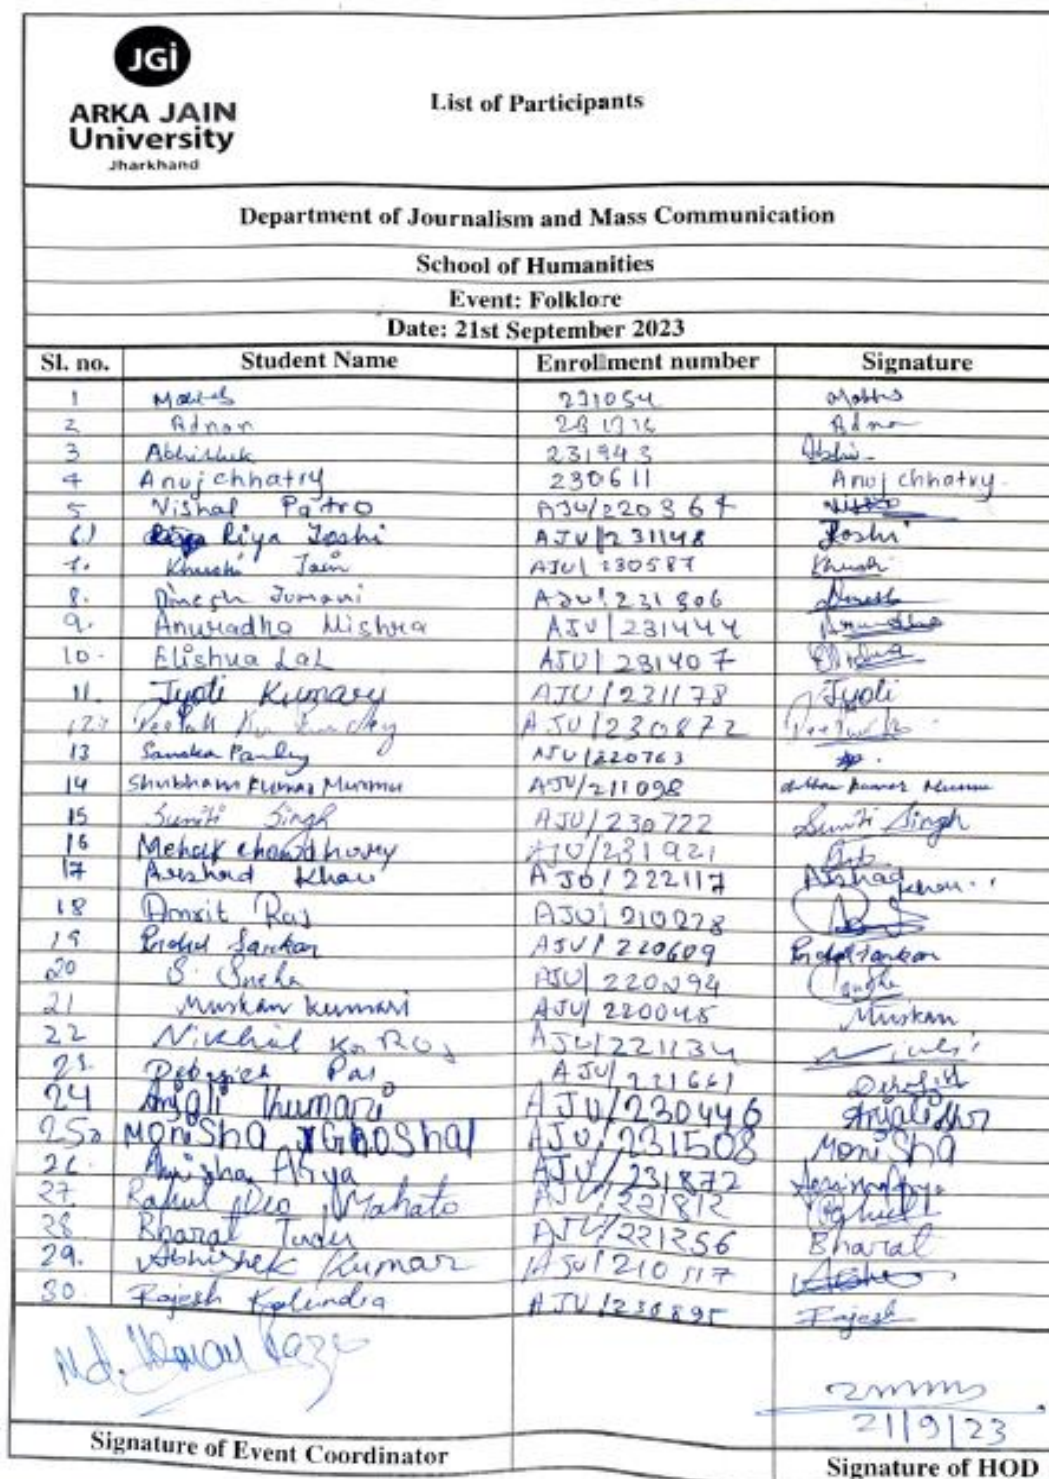 JGi
ARKA JAIN
University
Jharkhand
List of Participants
Department of Journalism and Mass Communication
School of Humanities
Event: Folklore
Date: 21st September 2023
Sl. no. Student Name Enrollment number Signature
1 231054
2 Adnan Adnan
3 Abhishek 231943 Abhi
4 Anuj chhatry 230611 Anuj chhatry
5 Vishal Patro AJU/220364
6) Riya Joshi AJU/231148 Joshi
7. Khushi Jain AJU/230587 Khushi
8. Dinesh Jumani AJU/231806 Dinesh
9. Anuradha Mishra AJU/231444 Anuradha
10. Elishua Lal AJU/231407 Elishua
11. Jyoti Kumari AJU/231178 Jyoti
12. AJU/230872
13 AJU/220763
14 Shubham Kumar Murmu AJU/211098 Kumar Murmu
15 Suniti Singh AJU/230722 Suniti Singh
16 Mehak chowdhury AJU/231921
17 Arshad Khan AJU/222117 Arshad Khan
18 Amrit Raj AJU/210278
19 Sarkar AJU/220609 Sarkar
20 S. Sneha AJU/220094 Sneha
21 Muskan Kumari AJU/220045 Muskan
22 Nikhil Kr Raj AJU/221134
23. AJU/221661
24 Anjali Kumari AJU/230446 Anjali
25 MoniSha GhoShal AJU/231508 MoniSha
26. AJU/231872
27. Rahul Deo Mahato AJU/221812 Rahul
28 Bharat Tudu AJU/221256 Bharat
29. Abhishek Kumar AJU/210117
30. Rajesh Kalindia AJU/230895 Rajesh
Md.
21/9/23
Signature of Event Coordinator Signature of HOD